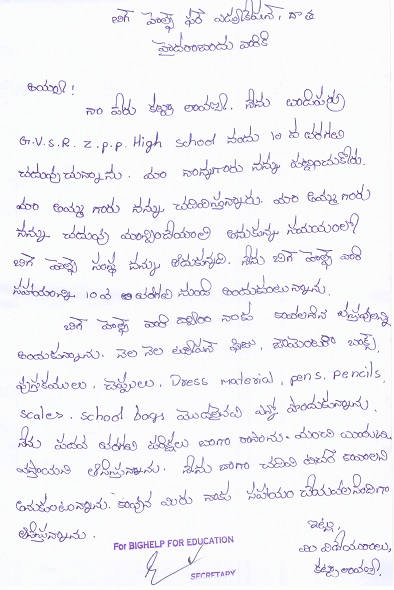 బిగ్ హెల్ప్ ఫర్ ఎడ్యుకేషన్, దాత
హైదరాబాదు వారికి
అయ్యా!
నా పేరు కట్టా లావణ్య. నేను బండిపురు
G.V.S.R. Z.p.p. High school నందు 10 వ తరగతి
చదువుచున్నాను. మా నాన్నగారు నన్ను
మా అమ్మ గారు నన్ను చదివిస్తున్నారు. మా అమ్మ గారు
నన్ను చదువు మాన్పించేయాలి అనుకున్న సమయంలో
బిగ్ హెల్ప్ సంస్థ నన్ను ఆదుకున్నది. నేను బిగ్ హెల్ప్ వారి
సహాయాన్ని 10 వ తరగతి నుండి అందుకుంటున్నాను.
బిగ్ హెల్ప్ వారి ద్వారా నాకు కావలసిన వస్తువులన్ని
అందుకున్నాను. నెల నెల ట్యూషన్ ఫీజు, జామెంటరీ బాక్స్,
పుస్తకములు, చెప్పులు, Dress material, pens, pencils,
scales, school bags మొదలైనవి ఎన్నో పొందుకున్నాను.
నేను పదవ తరగతి పరీక్షలు బాగా రాసాను. మంచి
వస్తాయని ఆశిస్తున్నాను. నేను బాగా చదివి టీచర్ కావాలని
అనుకుంటున్నాను. కావున మీరు నాకు సహాయం చేయవలసిందిగా
ఆశిస్తున్నాను.
ఇట్లు,
మీ విధేయురాలు,
కట్టా లావణ్య.
For BIGHELP FOR EDUCATION
SECRETARY